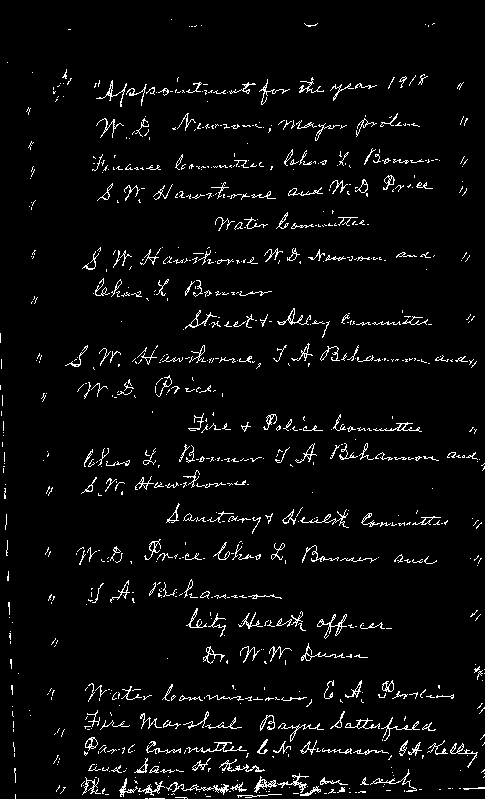 "Appointments for the year 1918 "
" W. D. Newsom, Mayor protem "
" Finance Committee, Chas L. Bonner "
" S. W. Hawthorne and W. D. Price "
Water Committee
" S. W. Hawthorne W. D. Newsom and "
" Chas. L. Bonner
Street & Alley Committee "
" S. W. Hawthorne, T. A. Bohannon and "
" W. D. Price.
Fire & Police Committee "
" Chas L. Bonner T. A. Bohannon and "
" S. W. Hawthorne
Sanitary & Health Committee "
" W. D. Price Chas L. Bonner and "
" T. A. Bohannon "
City Health officer "
" Dr. W. W. Dunn
" Water Commissioner, E. A. Perkins "
" Fire Marshal Bayne Satterfield "
" Park Committee, C. N. Humason, J. A. Kelley
" and Sam H. Kerr
" The first named party on each